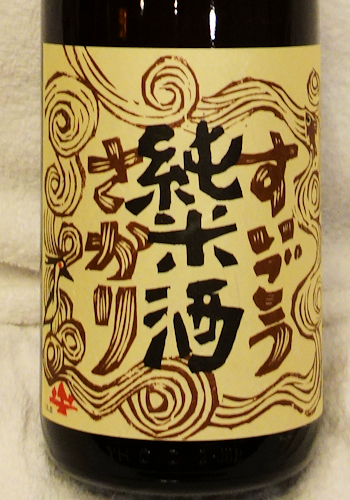 すいごう
純米酒
さかり